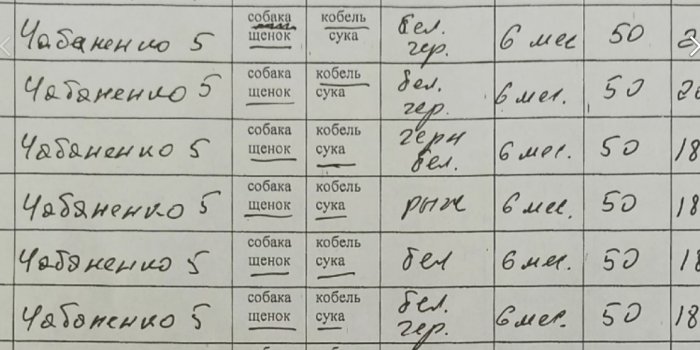 Чабаненко 5 собака щенок кобель сука бел. чер. 6 мес 50
Чабаненко 5 собака щенок кобель сука бел. чер. 6 мес. 50
Чабаненко 5 собака щенок кобель сука черн бел. 6 мес. 50 18
Чабаненко 5 собака щенок кобель сука рыж 6 мес. 50 18
Чабаненко 5 собака щенок кобель сука бел 6 мес. 50
Чабаненко 5 собака щенок кобель сука бел. чер. 6 мес. 50 18